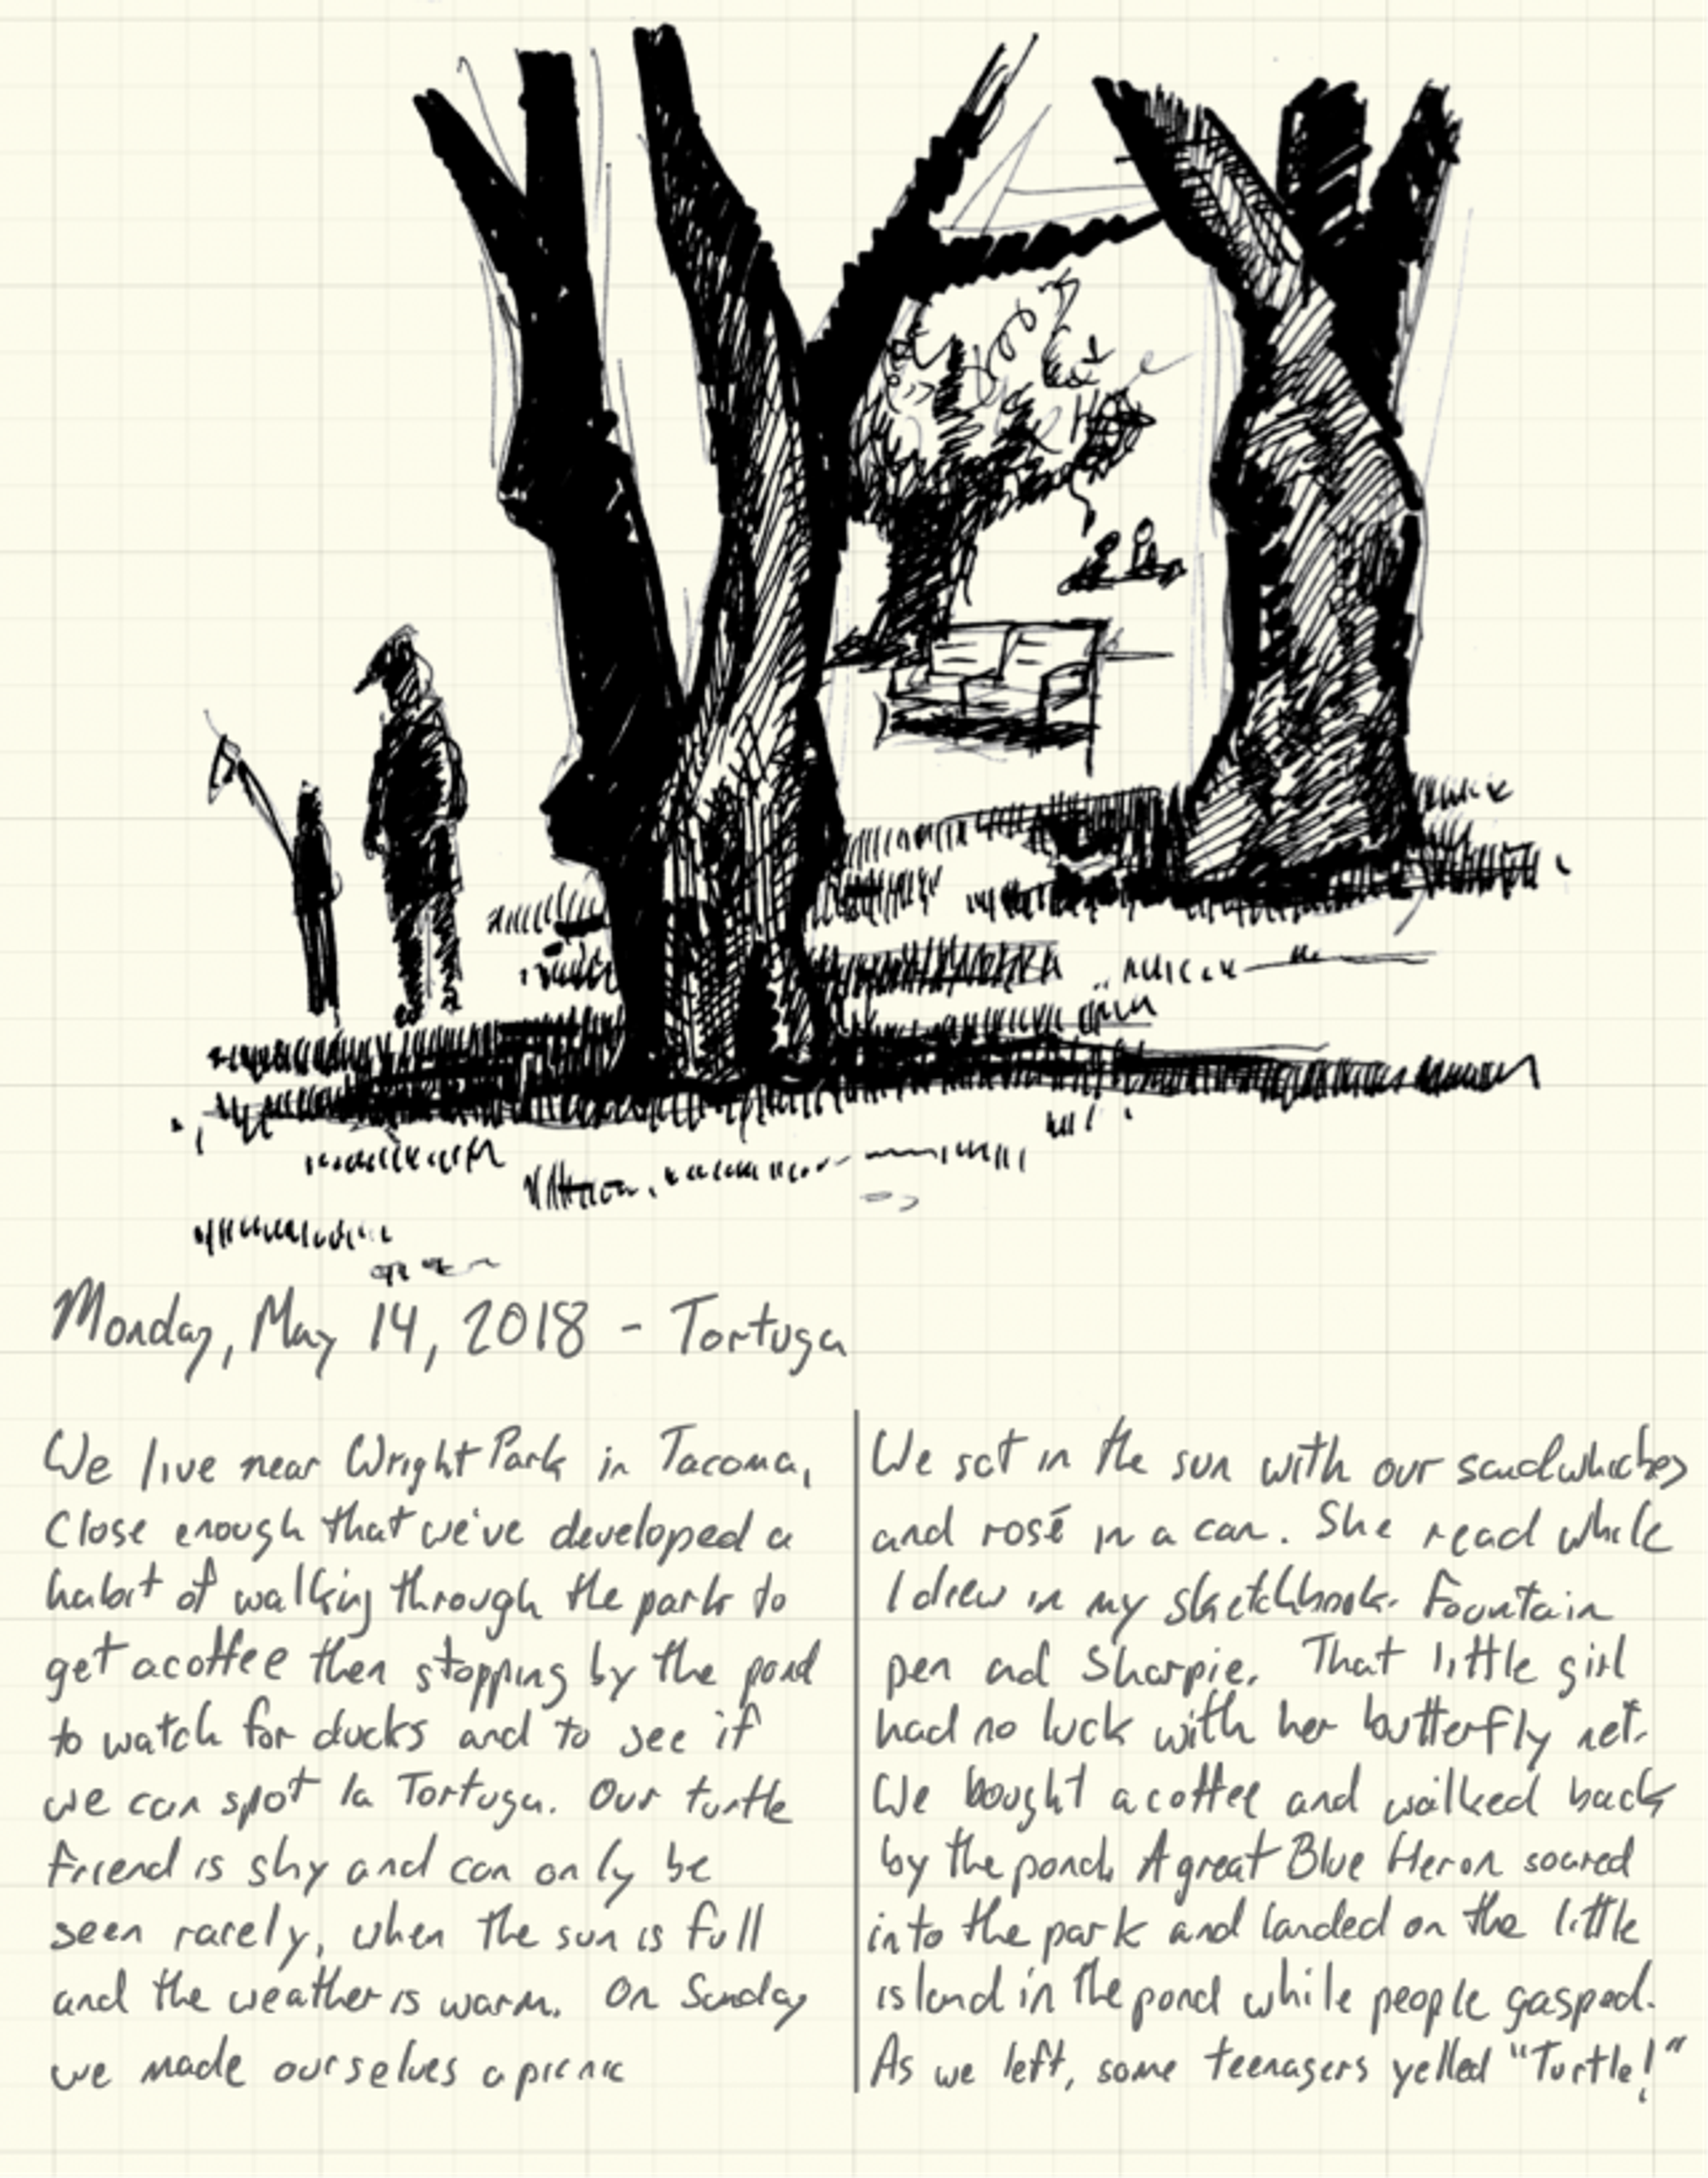 Monday, May 14, 2018 - Tortuga
We live near Wright Park in Tacoma,
Close enough that we've developed a
habit of walking through the park to
get a coffee then stopping by the pond
to watch for ducks and to see if
we can spot la Tortuga. Our turtle
friend is shy and can only be
seen rarely, when the sun is full
and the weather is warm. On Sunday
we made ourselves a picnic
We sat in the sun with our sandwhiches
and rosé in a can. She read while
I drew in my sketchbook. Fountain
pen and Sharpie. That little girl
had no luck with her butterfly net.
We bought a coffee and walked back
by the pond. A great Blue Heron soared
into the park and landed on the little
island in the pond while people gasped.
As we left, some teenagers yelled "Turtle!"